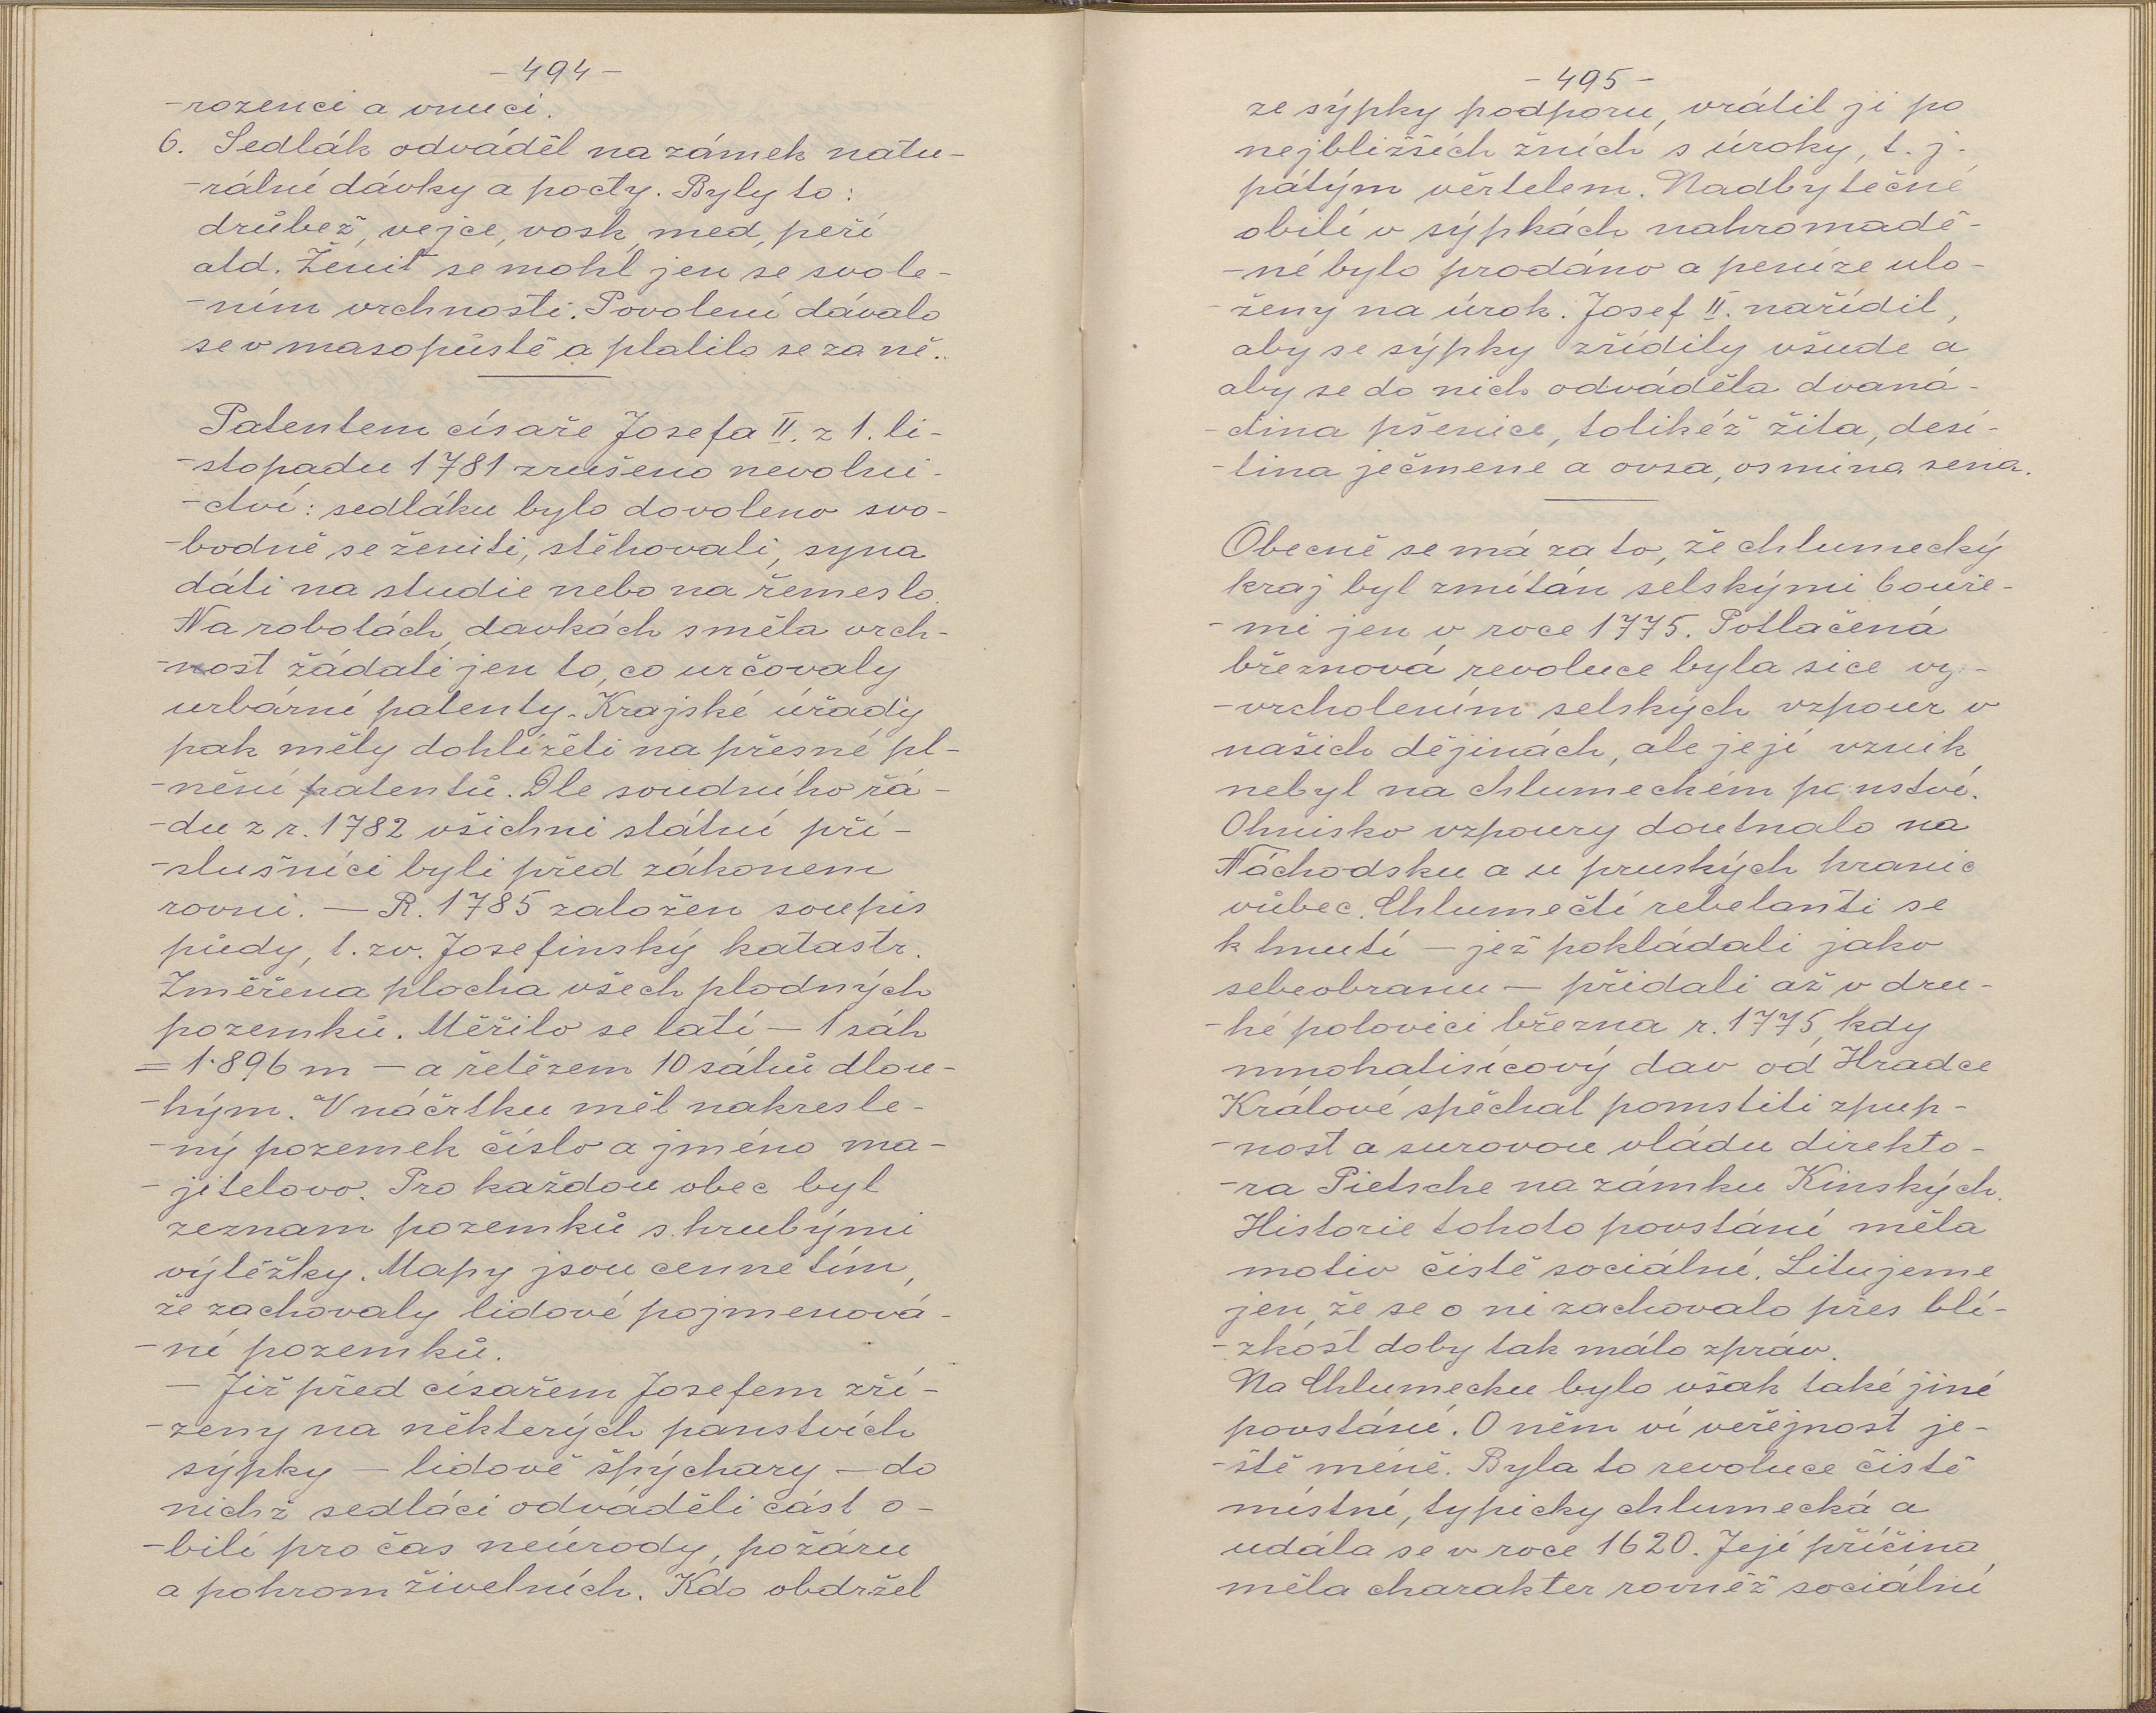 - 494 -
-rozenci a vnuci.
6. Sedlák odváděl na zámek natu-
-rální dávky a pocty. Byly to:
drůbež, vejce, vosk, med, peří
atd. Ženit se mohl jen se svole-
-ním vrchnosti. Povolení dávalo
se v masopůstě a platilo se za ně.
Patentem císaře Josefa II. z 1. li-
-stopadu 1781 zrušeno nevolni-
-ctví: sedláku bylo dovoleno svo-
-bodně se ženiti, stěhovati, syna
dáti na studie nebo na řemeslo.
Na robotách, davkách směla vrch-
-nost žádati jen to, co určovaly
urbární patenty. Krajské úřady
pak měly dohlížeti na přesné pl-
-nění patentů. Dle soudního řá-
-du z r. 1782 všichni státní pří-
-slušníci byli před zákonem
rovni. — R. 1785 založen soupis
půdy, t. zv. Josefinský katastr.
Změřena plocha všech plodných
pozemků. Měřilo se latí — 1 sáh
= 1·896 m — a řetězem 10 sáhů dlou-
-hým. V náčrtku měl nakresle-
-ný pozemek číslo a jméno ma-
-jitelovo. Pro každou obec byl
zeznam pozemků s hrubými
výtěžky. Mapy jsou cenné tím,
že zachovaly lidové pojmenová-
-ní pozemků.
— Již před císařem Josefem zří-
-zeny na některých panstvích
sýpky — lidově špýchary — do
nichž sedláci odváděli část o-
-bilí pro čas neúrody, požáru
a pohrom živelních. Kdo obdržel
- 495 -
ze sýpky podporu, vrátil ji po
nejbližších žních s úroky, t. j.
pátým věrtelem. Nadbytečné
obilí v sýpkách nahromadě-
-né bylo prodáno a peníze ulo-
-ženy na úrok. Josef II. nařídil,
aby se sýpky zřídily všude a
aby se do nich odváděla dvaná-
-ctina pšenice, tolikéž žita, desí-
-tina ječmene a ovsa, osmina sena.
Obecně se má za to, že chlumecký
kraj byl zmítán selskými bouře-
-mi jen v roce 1775. Potlačená
březnová revoluce byla sice vy-
-vrcholením selských vzpour v
našich dějinách, ale její vznik
nebyl na chlumeckém panství.
Ohnisko vzpoury doutnalo na
Náchodsku a u pruských hranic
vůbec. Chlumečtí rebelanti se
k hnutí — jež pokládali jako
sebeobranu — přidali až v dru-
-hé polovici března r. 1775, kdy
mnohatisícový dav od Hradce
Králové spěchal pomstiti zpup-
-nost a surovou vládu direkto-
-ra Pietsche na zámku Kinských.
Historie tohoto povstání měla
motiv čistě sociální. Litujeme
jen, že se o ni zachovalo přes blí-
-zkost doby tak málo zpráv.
Na Chlumecku bylo však také jiné
povstání. O něm ví veřejnost je-
-ště méně. Byla to revoluce čistě
místní, typicky chlumecká a
udála se v roce 1620. Její příčina
měla charakter rovněž sociální